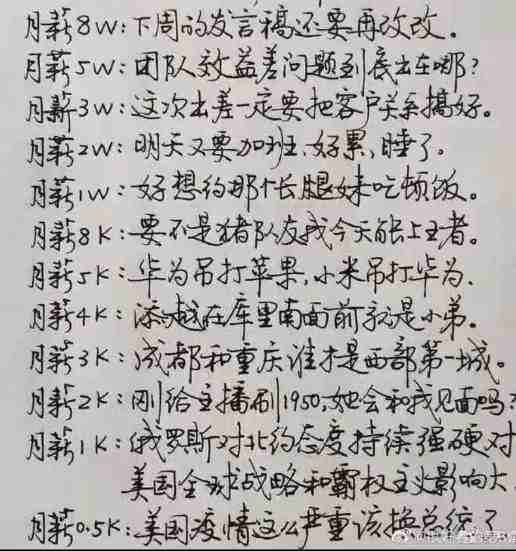 月薪8W:下周的发言稿还要再改改。
月薪5W:团队效益差问题到底出在哪?
月薪3W:这次出差一定要把客户关系搞好。
月薪2W:明天又要加班,好累,睡了。
月薪1W:好想约那个长腿妹吃顿饭。
月薪8K:要不是猪队友我今天能上王者。
月薪5K:华为吊打苹果,小米吊打华为.
月薪4K:添越在库里南面前就是小弟。
月薪3K:成都和重庆谁才是西部第一城。
月薪2K:刚给主播刷1950,她会和我见面吗?
月薪1K:俄罗斯对北约态度持续强硬对
美国全球战略和霸权主义影响大.
月薪0.5K:美国疫情这么严重该换总统了